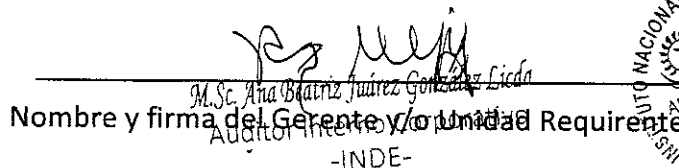 M.Sc. Ana Beatriz Juárez González Licda
Nombre y firma del Gerente y/o Unidad Requirente
Auditor Interno Corporativo
-INDE-
INSTITUTO NACIONAL